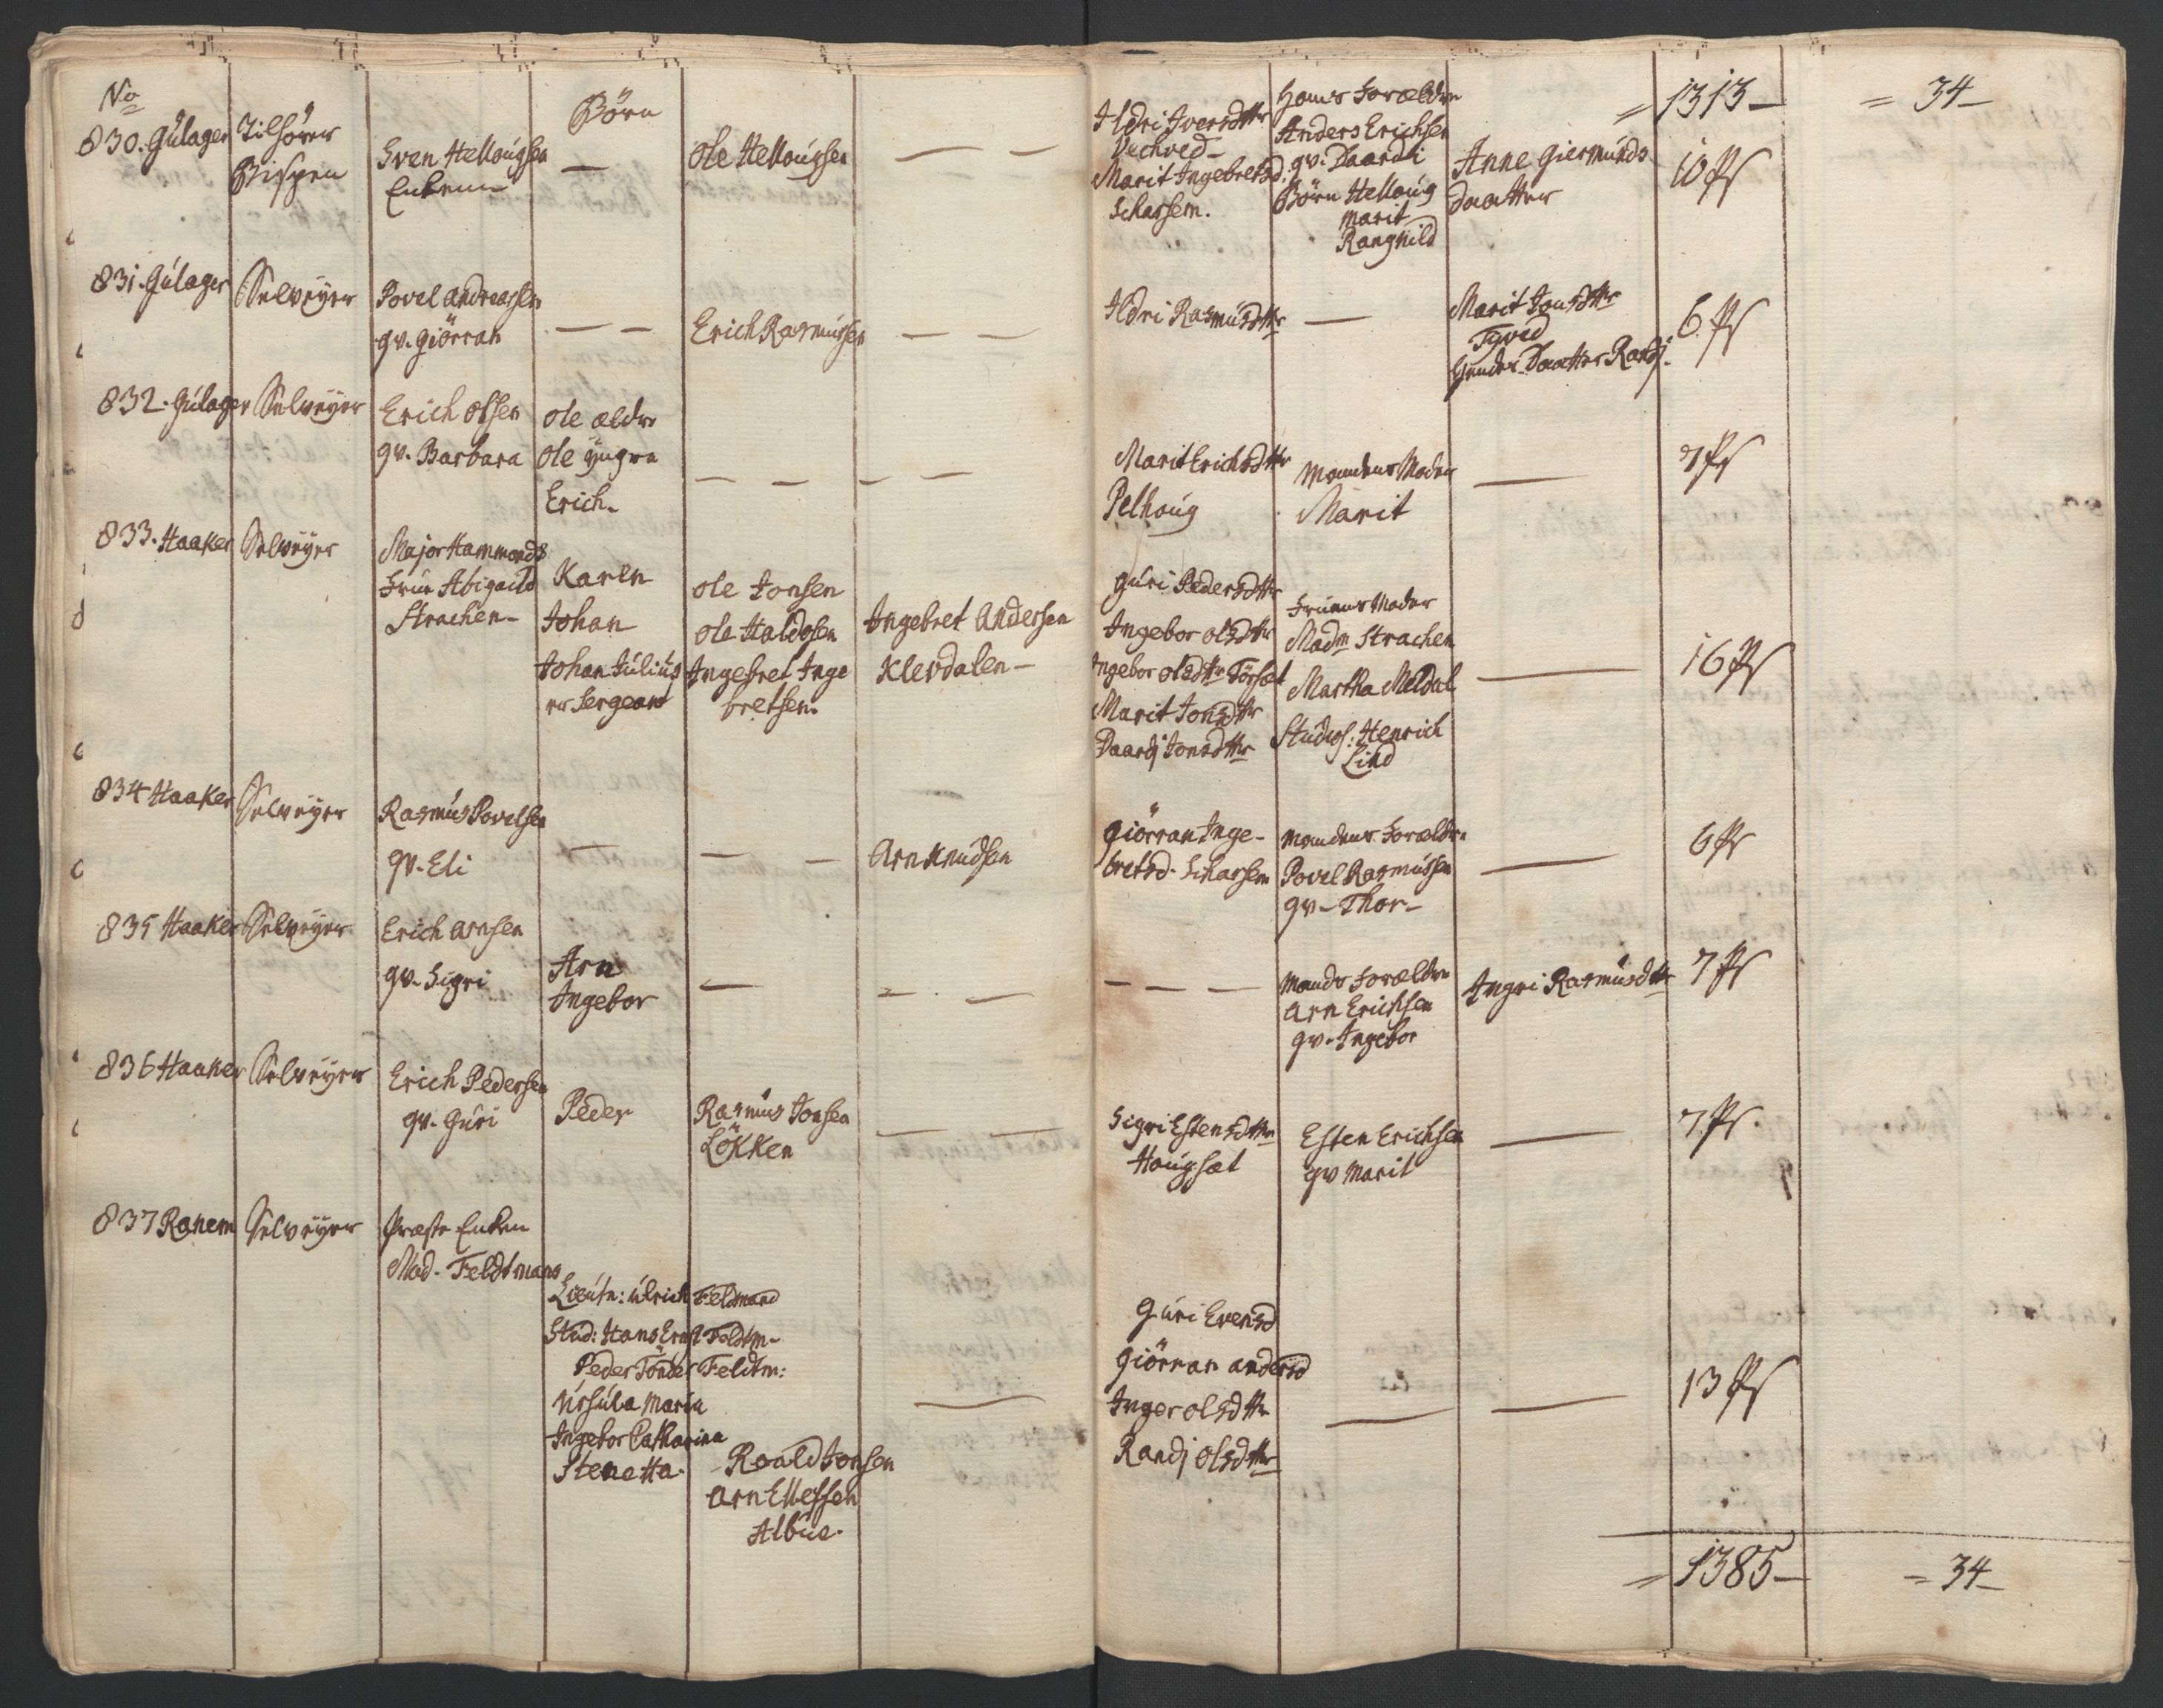 No
830. Gúlager
Tilhörer
Bispen
Sven Hellougsen
Enkem
Börn
—
Ole Hellougsen
— —
Ildri Iversdttr
Vechved-
Marit Ingebretsd.
Scharsem.
Hans Forældre
Anders Erichsen
gv. Daardi
Börn Helloug
Marit
Rangnild
Anne Giermúnds
Daatter
= 1313 —
10 Ps
= 34 —
831. Gúlager
Selveÿer
Povel Andreassen
gv. Giörran
— —
Erich Rasmússen
— —
Ildri Rasmúsdttr
—
Marit Jonsdttr
Tyved
Hendes Daatter Randj.
6. Ps
832. Gúlager
Selveÿer
Erich Olsen
gv. Barbara
Ole ældre
Ole ÿngre
Erich.
— —
— —
Marit Erichsdttr
Pelhoúg
Mandens Moder
Marit
—
7 Ps
833. Haaker
Selveÿer
Major Hammonds
Frúe Abigaild
Strachen-
Karen
Johan
Johan Júliús
er Sergeant
Ole Jonsen
Ole Haldosen
Ingebret Inge
bretsen.
Ingebret Andersen
Klevdalen —
Gúri Pedersdttr
Ingebor Olsdttr
Ingebor Olsdttr Törset
Marit Jonsdttr
Daardj Jonsdttr
Frúens Moder
Madm Strachen
Martha Meldal
Studios: Henrich
Lind
—
16 Ps
834 Haaker
Selveÿer
Rasmús Povelsen
gv. Eli
—
— —
Arn Knúdsen
Giörran Inge-
bretsd. Scharsem
Mandens Forældre
Povel Rasmússen
gv. Thor-
—
6 Ps
835 Haaker
Selveÿer
Erich Arnsen
gv. Sigri
Arn
Ingebor
—
— —
— — —
Mands Forældre
Arn Erichsen
gv. Ingebor
Ingri Rasmúsdttr
7 Ps
836 Haaker
Selveÿer
Erich Pedersen
gv. Gúri
Peder
Rasmús Jonsen
Lökken
— —
Sigri Estensdttr
Hoúgset
Esten Erichsen
gv Marit
—
7. Ps.
837 Ranem
Selveÿer
Præste Enken
Mad. Feldtmans
Lieútn: Úlrich Feldmand
Stúd: Hans Ernst Feldtm-
Peder Tönder Feldtm:
Úrsúla Maria
Ingebor Catharina
Stenetta.
Roald Jonsen
Arn Ellefsen
Albúe.
—
Gúri Evensd
Giörran Andersd
Inger Olsdttr
Randj Olsdttr
—
—
13 Ps
= 1385 —
= 34 —